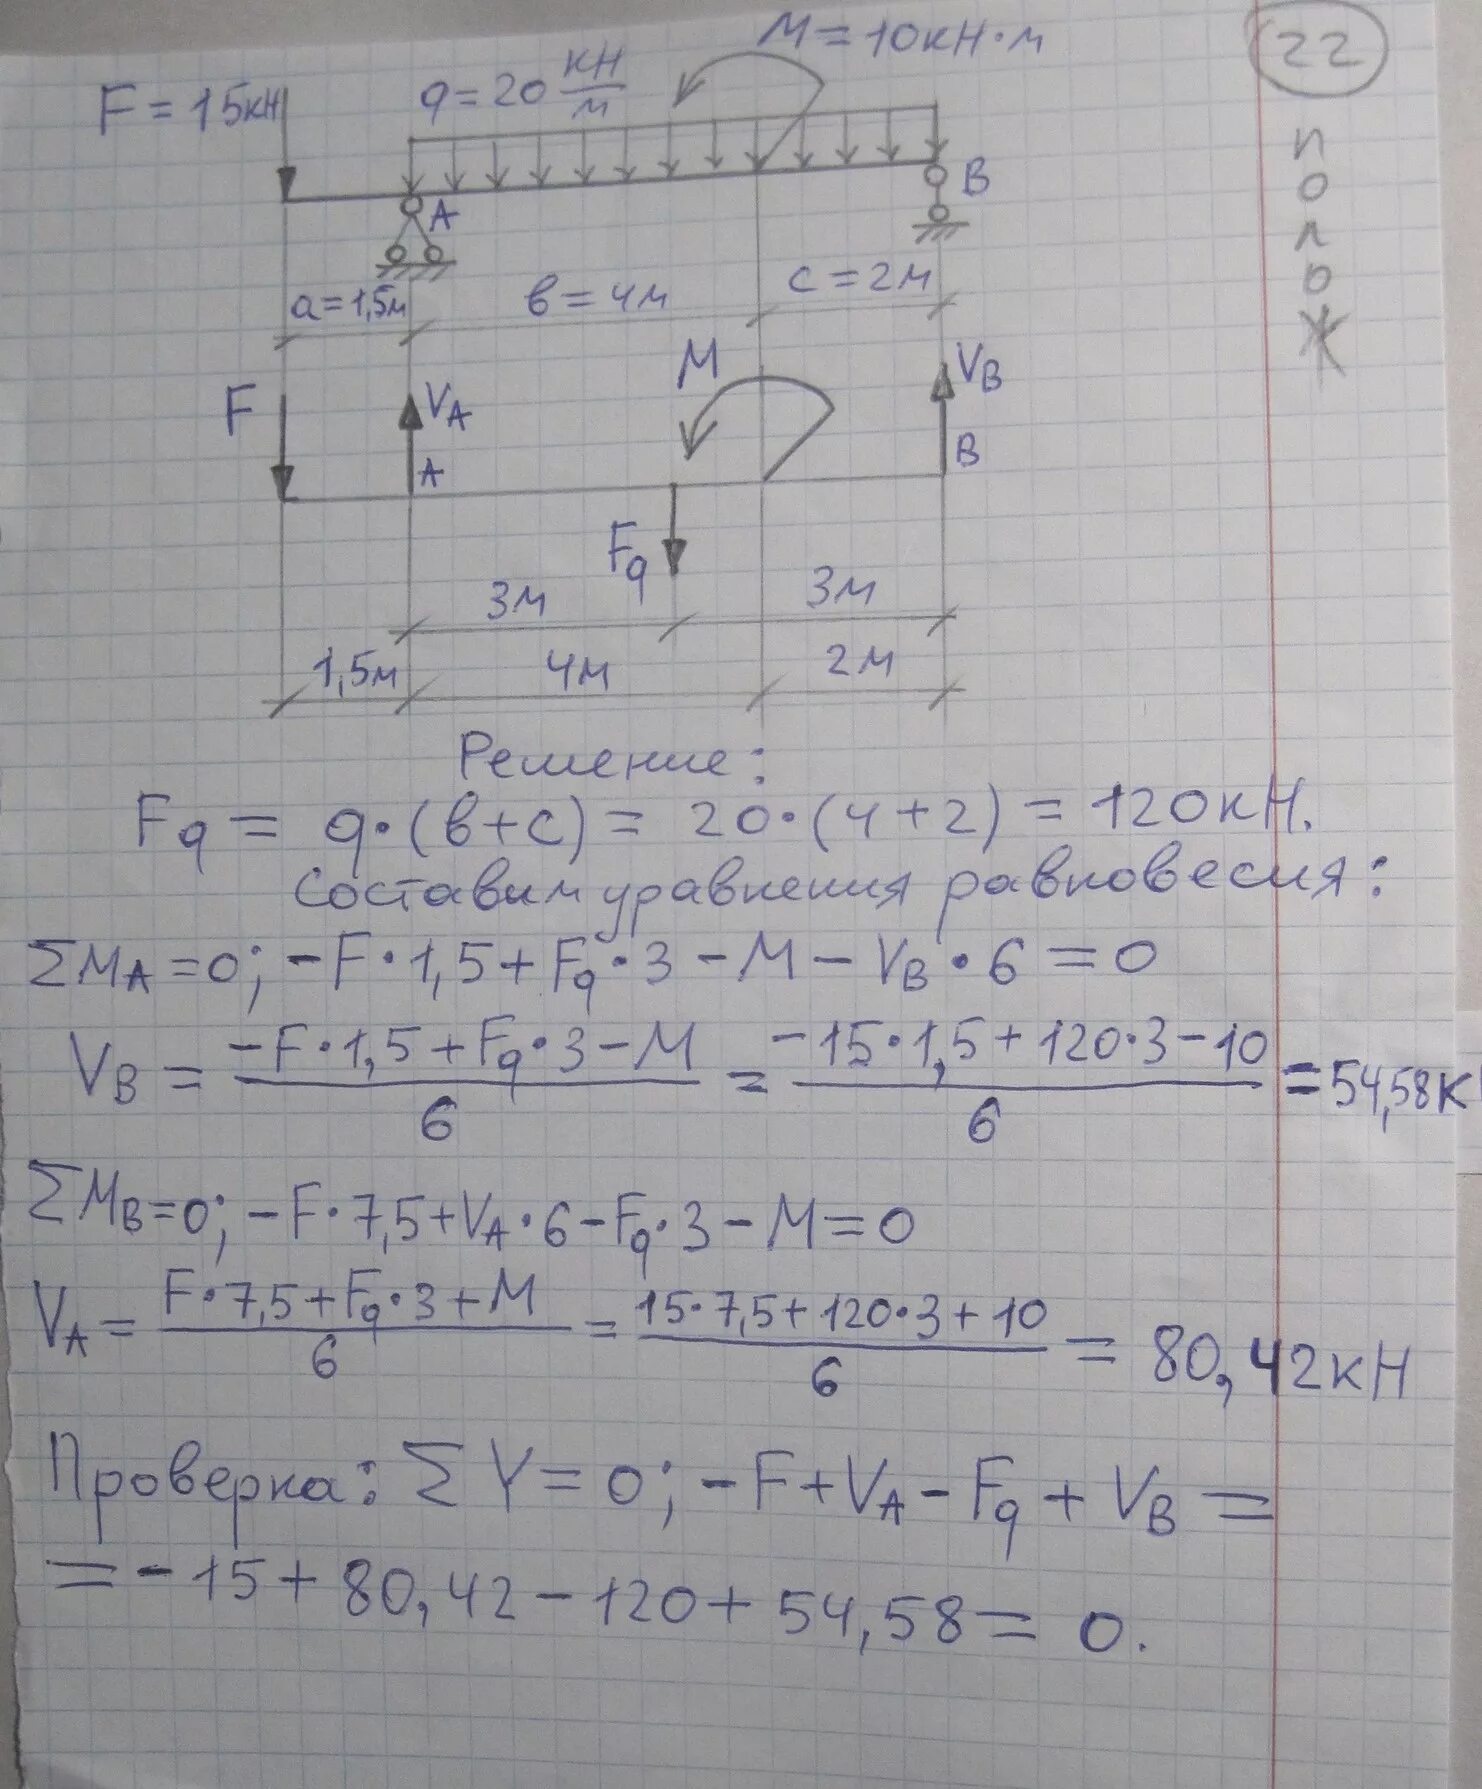 M = 10 кН·м
22
F = 15кН
q = 20 кН/м
полож
A
B
a = 1,5м
в = 4м
c = 2м
M
VB
F
VA
A
B
Fq
3м
3м
1,5м
4м
2м
Решение:
Fq = q·(в+c) = 20·(4+2) = 120кН.
Составим уравнения равновесия:
ΣMA=0; -F·1,5+Fq·3-M-VB·6=0
VB = (-F·1,5+Fq·3-M)/6 = (-15·1,5+120·3-10)/6 = 54,58к
ΣMB=0; -F·7,5+VA·6-Fq·3-M=0
VA = (F·7,5+Fq·3+M)/6 = (15·7,5+120·3+10)/6 = 80,42кН
Проверка: ΣY=0; -F+VA-Fq+VB=
=-15+80,42-120+54,58=0.